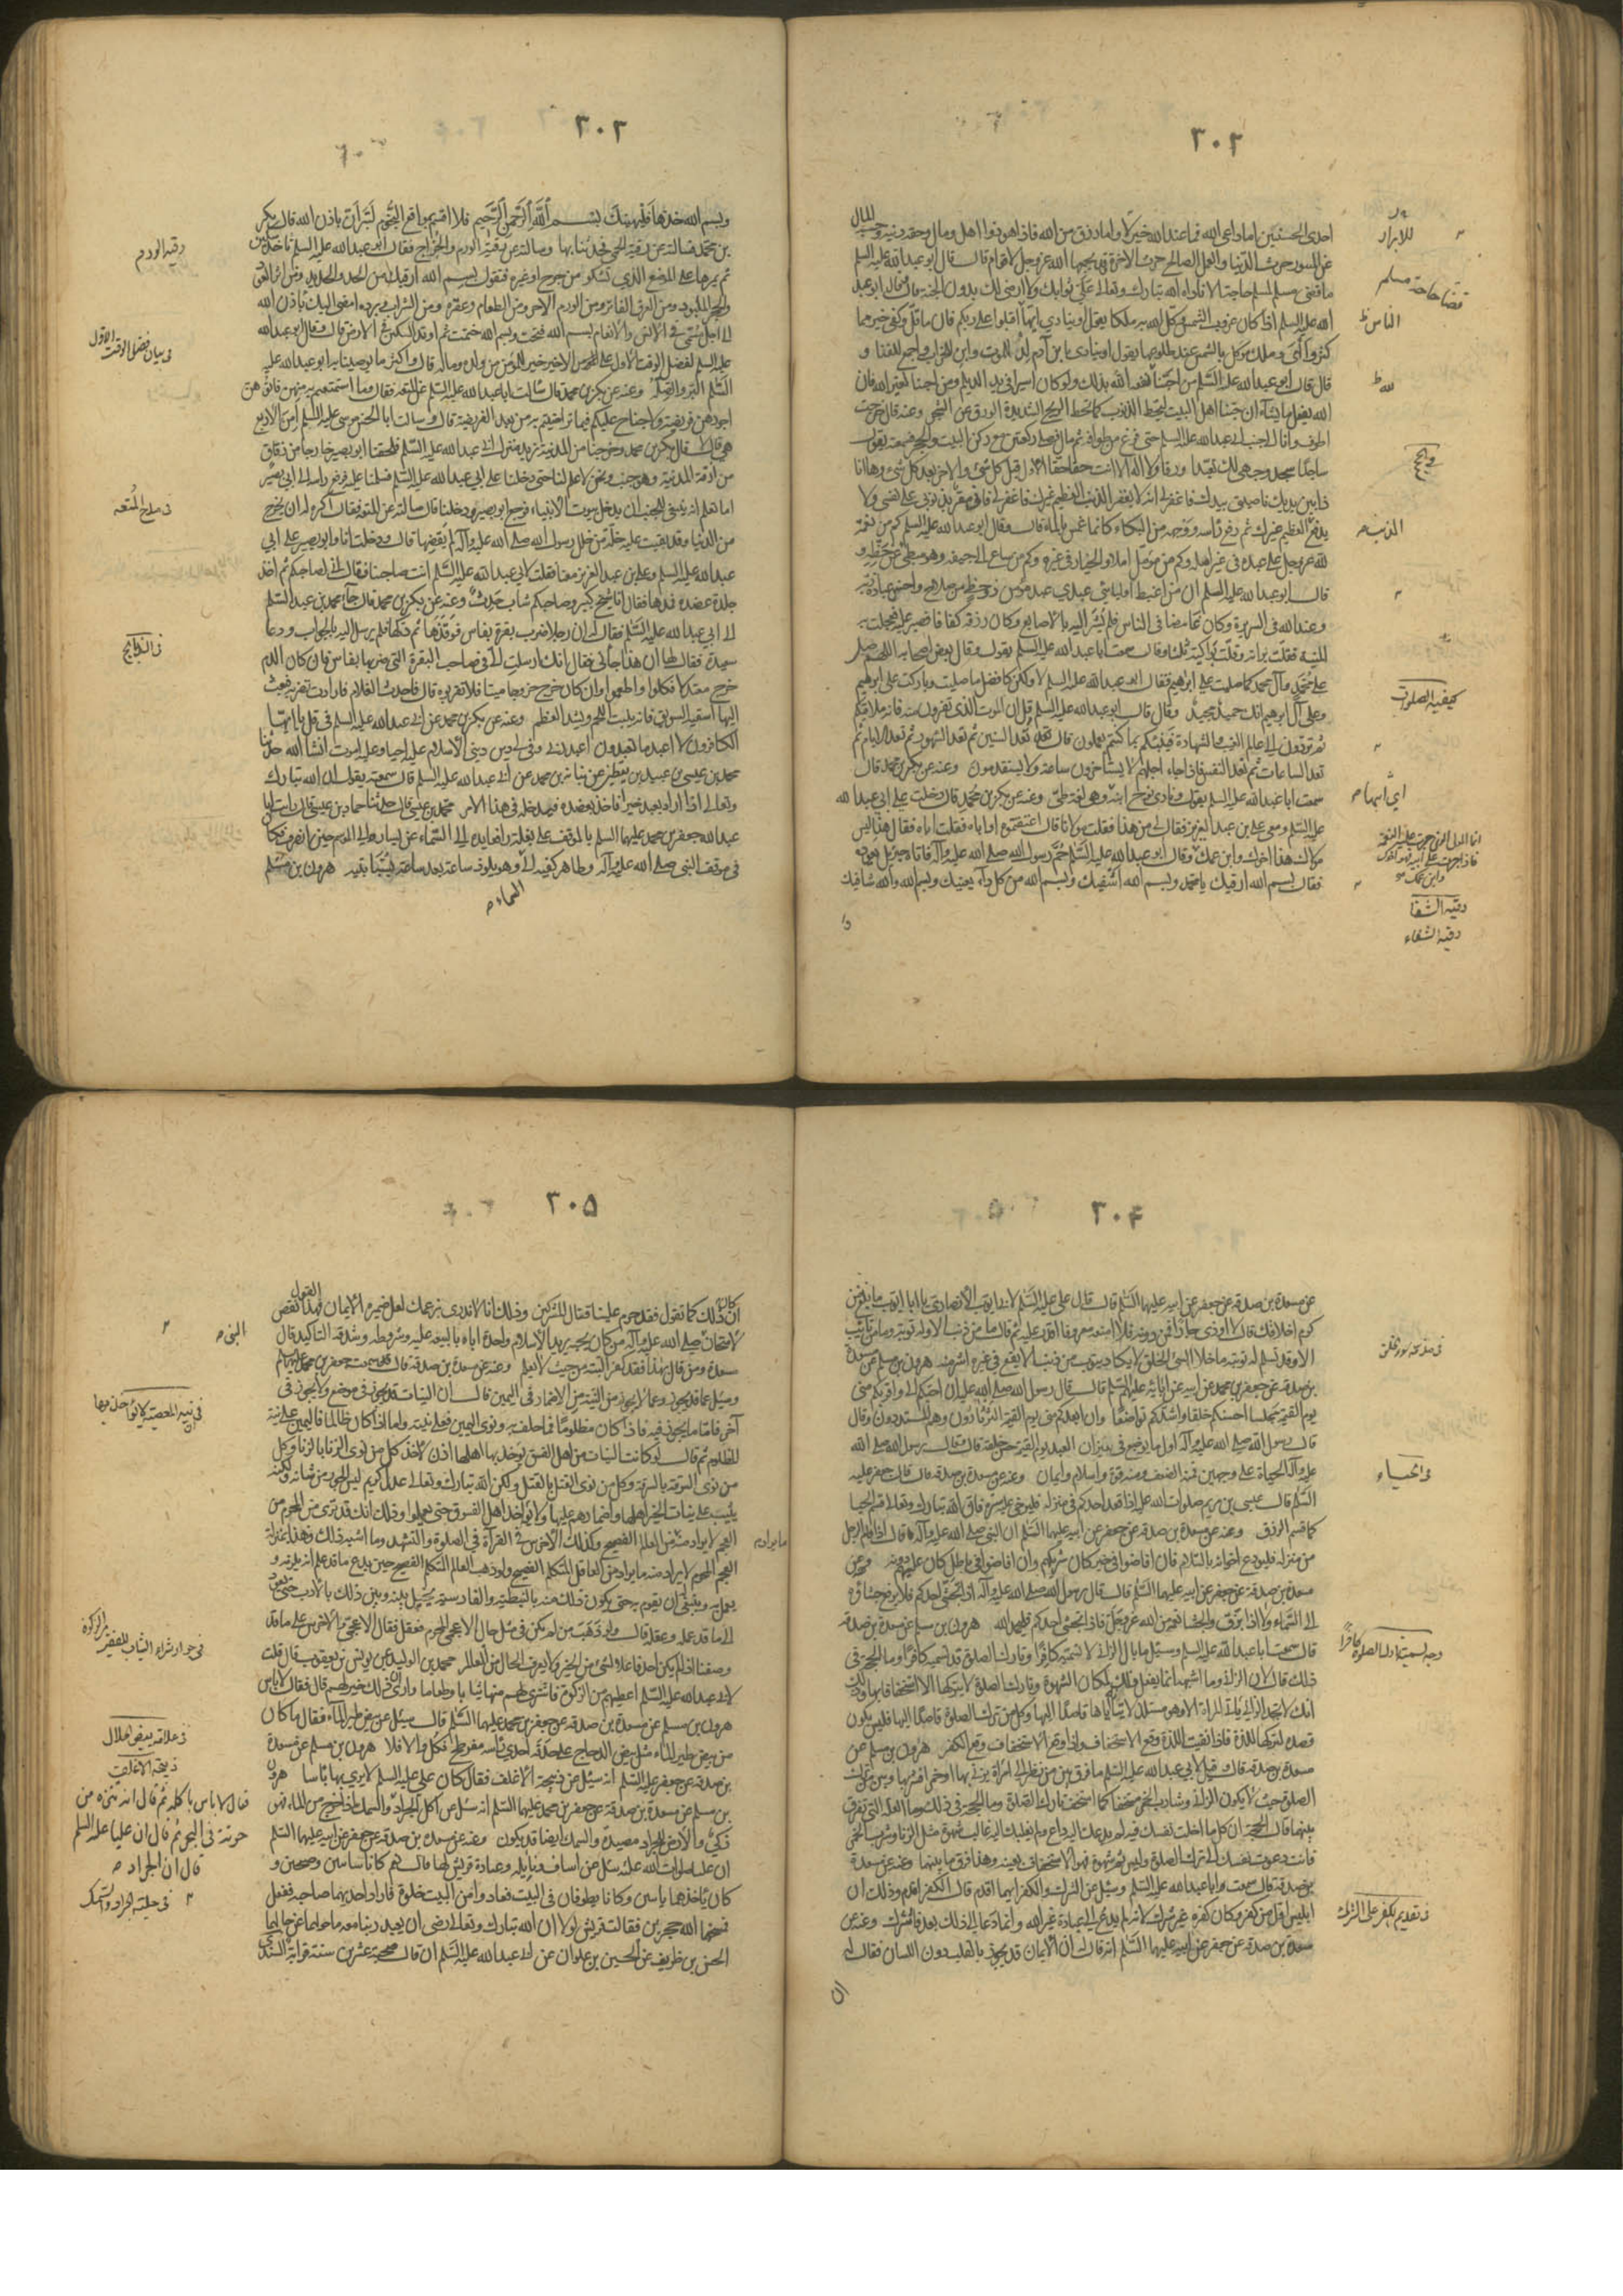 ٣٠٢
احدى الحسنيين اما داعى الله فما عند الله خير له واما رزق من الله فاذا هو ذو اهل ومال ومعه دينه وحسبه المال
و البنون حرث الدنيا والعمل الصالح حرث الآخرة وقد يجمعها الله عز وجل لاقوام قال قال ابو عبد الله عليه السلم
ما قضى مسلم لمسلم حاجة الا ناداه الله تبارك وتعالى على ثوابك ولا ارضى لك بدون الجنة قال وقال ابو عبد
الله عليه السلم اذا كان عند غروب الشمس وكل الله بها ملكا يقول او ينادي ايها الناس اقبلوا على ربكم فان ما قل وكفى خير مما
كثر والهى وملك موكل بالشمس عند طلوعها يقول او ينادي يا بن آدم لد للموت وابن للخراب واجمع للفنا و
قال قال ابو عبد الله عليه السلم من احبنا نفعه الله بذلك ولو كان اسيرا في يد الديلم ومن احبنا لغير الله فان
الله يفعل ما يشاء ان حبنا اهل البيت ليحط الذنوب كما تحط الريح الشديدة الورق عن الشجر وعنه قال خرجت
اطوف وانا الى جنب ابي عبد الله عليه السلم حتى فرغ من طوافه ثم مال فصلى ركعتين مع ركن البيت والحجر فسمعته يقول
ساجدا سجد وجهي لك تعبدا ورقا ولا اله الا انت حقا حقا الاول قبل كل شئ والآخر بعد كل شئ وها انا
ذا بين يديك ناصيتي بيدك فاغفر لي انه لا يغفر الذنب العظيم غيرك فاغفر لي فاني مقر بذنوبي على نفسي ولا
يدفع العظيم غيرك ثم رفع رأسه ووجهه من البكاء كانما غمس بالماء قال وقال ابو عبد الله عليه السلم كم من نعمة
لله عز وجل على عبده في غير امله وكم من مؤمل املا والخيار في غيره وكم من ساع الى حتفه وهو مبطئ عن حظه و
قال ابو عبد الله عليه السلم ان من اغبط اوليائى عندي عبد مؤمن ذو حظ من صلاح واحسن عبادة ربه
وعبد الله في السريرة وكان غامضا في الناس فلم يشر اليه بالاصابع وكان رزقه كفافا فصبر عليه فعجلت به
المنية فقل تراثه وقلت بواكيه ثلثا وقال سمعت ابا عبد الله عليه السلم يقول وقال بعض اصحابه اللهم صل
على محمد وآل محمد كما صليت على ابراهيم فقال ابو عبد الله عليه السلم لا ولكن كافضل ما صليت وباركت على ابرهيم
وعلى آل ابرهيم انك حميد مجيد وقال قال ابو عبد الله عليه السلم قل ان الموت الذي تفرون منه فانه ملاقيكم
ثم تردون الى عالم الغيب والشهادة فينبئكم بما كنتم تعملون قال تعد السنين ثم تعد الشهور ثم تعد الايام ثم
تعد الساعات ثم تعد النفس فاذا جاء اجلهم لا يستأخرون ساعة ولا يستقدمون وعنه عن بكر بن محمد قال
سمعت ابا عبد الله عليه السلم يقول ونادى نوح ابنه وهي لغة طى وعنه عن بكر بن محمد قال دخلت على ابي عبد الله
عليه السلم ومعى على بن عبد العزيز فقال لي من هذا فقلت مولانا قال اعتقتموه او اباه فقلت اباه فقال هذا ليس
مولاك هذا اخوك وابن عمك وقال ابو عبد الله عليه السلم حم رسول الله صلى الله عليه وآله فاتاه جبرئيل فعوذه
فقال بسم الله ارقيك يا محمد وبسم الله اشفيك وبسم الله من كل داء يعنيك وبسم الله والله شافيك
للابرار
قضا حاجة مسلم
الناس
لله
كيفية الصلوات
اي ابنها
رقية الشفا
رقية الشفاء
٣٠٣
وبسم الله خذها فلتهنيك بسم الله الرحمن الرحيم فلا اقسم بمواقع النجوم لتبرأن باذن الله قال بكر
بن محمد فسالته عن رقية الحمى فحدثنا بها وسالته عن رقية الورم والجراح فقال ابو عبد الله عليه السلم تاخذ سكينا
ثم تمرها على الموضع الذي تشكو من جرح او غيره فتقول بسم الله ارقيك من الحد والحديد ومن اثر العود
والحجر الملبود ومن العرق الفاتر ومن الورم الاحر ومن الطعام وعقره ومن الشراب وبرده امضى اليك باذن الله
الى اجل مسمى في الانس والانعام بسم الله فتحت وبسم الله ختمت ثم اوتد السكين في الارض قال وقال ابو عبد الله
عليه السلم لفضل الوقت الاول على الاخير خير للمؤمن من ولده وماله قال واكثر ما يوصينا به ابو عبد الله عليه
السلم البر والصلة وعنه عن بكر بن محمد قال سالت ابا عبد الله عليه السلم عن المتعة فقال فما استمتعتم به منهن فاتوهن
اجورهن فريضة ولا جناح عليكم فيما تراضيتم به من بعد الفريضة قال وسالت ابا الحسن موسى عليه السلم امن الاربع
هي قال لا قال بكر بن محمد وخرجنا من المدينة نريد منزل ابي عبد الله عليه السلم فلحقنا ابو بصير خارجا من زقاق
من ازقة المدينة وهو جنب ونحن لا علم لنا حتى دخلنا على ابي عبد الله عليه السلم فسلمنا عليه فرفع راسه الى ابي بصير
اما تعلم انه لا ينبغي للجنب ان يدخل بيوت الانبياء فرجع ابو بصير ودخلنا قال سالته عن المتعة فقال اكره له ان يخرج
من الدنيا وقد بقيت عليه خلة من خلل رسول الله صلى الله عليه وآله لم يقضها قال ودخلت انا وابو بصير على ابي
عبد الله عليه السلم وعلى بن عبد العزيز معنا فقلت لابي عبد الله عليه السلم انت صاحبنا فقال اني لصاحبكم ثم اخذ
جلدة عضده فمدها فقال انا شيخ كبير وصاحبكم شاب حدث وعنه عن بكر بن محمد قال جاء محمد بن عبد السلم
الى ابي عبد الله عليه السلم فقال له ان رجلا ضرب بقرة بفاس فوقذها ثم ذبحها فلم يرسل اليه بالجواب ودعا
سعيدة فقال لها ان هذا جاءني فقال انك ارسلت الى في صاحب البقرة التي ضربها بفاس فان كان الدم
خرج معتدلا فكلوا واطعموا وان كان خرج خروجا ميتا فلا تقربوه قال فاخذت الغلام فارادت تضربه فبعث
اليها اسقيه السويق فانه ينبت اللحم ويشد العظم وعنه عن بكر بن محمد عن ابي عبد الله عليه السلم في قل يا ايها
الكافرون لا اعبد ما تعبدون اعبد الله وفي لي دين ديني الاسلام عليه احيا وعليه اموت انشا الله حدثنا
محمد بن عيسى بن عبيد بن يقطين عن نباتة بن محمد عن ابي عبد الله عليه السلم قال سمعته يقول ان الله تبارك
وتعالى اذا اراد بعبد خيرا اخذ بعضده فيدخله في هذا الامر محمد بن عيسى قال حدثنا حماد بن عيسى قال رايت ابا
عبد الله جعفر بن محمد عليهما السلم بالموقف على بغلة رافعا يده الى السماء عن يسار والي الموسم حين انصرف وكان
في موقف النبي صلى الله عليه وآله وظاهر كفيه الى السماء وهو يلوذ ساعة بعد ساعة بسبابتيه هرون بن مسلم
رقية الورم
في بيان فضل الوقت الاول
في مدح المتعة
في الذبايح
٣٠۴
عن مسعدة بن صدقة عن جعفر عن ابيه عليهما السلم قال قال علي عليه السلم لابي ايوب الانصاري يا ابا ايوب ما بلغ من
كرم اخلاقك قال لا اوذي جارا فمن دونه فلا امنعه معروفا اقدر عليه ثم قال ما من ذنب الا وله توبة وما من تائب
الا وقد تسلم له توبته ما خلا السئ الخلق لا يكاد يتوب من ذنب الا وقع في غيره اشر منه هرون بن مسلم عن مسعدة
بن صدقة عن جعفر بن محمد عن ابيه عن ابائه عليهم السلم قال قال رسول الله صلى الله عليه وآله ان احبكم الي واقربكم مني
يوم القيمة مجلسا احسنكم خلقا واشدكم تواضعا وان ابعدكم مني يوم القيمة الثرثارون وهم المستكبرون وقال
قال رسول الله صلى الله عليه وآله اول ما يوضع في ميزان العبد يوم القيمة حسن خلقه قال وقال رسول الله صلى الله
عليه وآله الحياء على وجهين فمنه الضعف ومنه قوة واسلام وايمان وعنه عن مسعدة بن صدقة قال قال جعفر عليه
السلم قال عيسى بن مريم صلوات الله عليه اذا قعد احدكم في منزله فليرخ عليه ستره فان الله تبارك وتعالى قسم الحيا
كما قسم الرزق وعنه عن مسعدة بن صدقة عن جعفر عن ابيه عليهما السلم ان النبي صلى الله عليه وآله قال اذا قام الرجل
من منزله فليودع اخوانه بالسلام فان افاضوا في خير كان شريكهم وان افاضوا في باطل كان عليهم دونه وعنه عن
مسعدة بن صدقة عن جعفر عن ابيه عليهما السلم قال قال رسول الله صلى الله عليه وآله اذا تجشى احدكم فلا يرفع جشاؤه
الى السماء ولا اذا بزق والجشا نعمة من الله عز وجل فاذا تجشى احدكم فليحمد الله هرون بن مسلم عن مسعدة بن صدقة
قال سمعت ابا عبد الله عليه السلم وسئل ما بال الزاني لا تسميه كافرا وتارك الصلوة قد تسميه كافرا وما الحجة في
ذلك قال لان الزاني وما اشبهه انما يفعل ذلك لمكان الشهوة وتارك الصلوة لا يتركها الا استخفافا بها وذلك
انك لا تجد الزاني ياتي المراة الا وهو مستلذ لاتيانه اياها قاصدا اليها وكل من ترك الصلوة قاصدا اليها فليس يكون
قصده لتركها اللذة فاذا نفيت اللذة وقع الاستخفاف واذا وقع الاستخفاف وقع الكفر هرون بن مسلم عن
مسعدة بن صدقة قال وقيل لابي عبد الله عليه السلم ما فرق بين من نظر الى امراة فزنى بها او خمر فشربها وبين من ترك
الصلوة حيث لا يكون الزاني وشارب الخمر مستخفا كما استخف تارك الصلوة وما الحجة في ذلك وما العلة التي تفرق
بينهما قال الحجة ان كل ما ادخلت نفسك فيه لم يدعك اليه داع ولم يغلبك اليه غالب شهوة مثل الزنا وشرب الخمر
فانت دعوت نفسك الى ترك الصلوة وليس ثم شهوة فهو الاستخفاف بعينه وهذا فرق ما بينهما وعنه عن مسعدة
بن صدقة قال سمعت ابا عبد الله عليه السلم وسئل عن الشرك والكفر ايهما اقدم قال الكفر اقدم وذلك ان
ابليس اول من كفر وكان كفره غير شرك لانه لم يدع الى عبادة غير الله وانما دعا الى ذلك بعد فاشرك وعنه عن
مسعدة بن صدقة عن جعفر عن ابيه عليهما السلم انه قال له ان الايمان قد يجوز بالقلب دون اللسان فقال له
ان
في الحياء
وجه تسمية تارك الصلوة كافرا
في تقديم الكفر على الشرك
٣٠۵
ان كان ذلك كما تقول فقد حرم علينا قتال المشركين وذلك انا لا ندري بزعمك لعل ضميره الايمان فهذا القول نقض
لامتحان النبي صلى الله عليه وآله من كان يجيئه يريد الاسلام واخذه اياه بالبيعة عليه وشروطه وشدة التاكيد قال
مسعدة ومن قال بهذا فقد كفر البتة من حيث لا يعلم وعنه عن مسعدة بن صدقة قال سمعت جعفر بن محمد عليهما السلم
وسئل عما قد يجوز وعما لا يجوز من النية من الاضمار في اليمين قال ان النيات قد تجوز في موضع ولا تجوز في
آخر فاما ما تجوز فيه فاذا كان مظلوما فما حلف به ونوى اليمين فعلى نيته واما اذا كان ظالما فاليمين على نية
المظلوم ثم قال لو كانت النيات من اهل الفسق يؤخذ بها اهلها اذن لاخذ كل من نوى الزنا بالزنا وكل
من نوى السرقة بالسرقة وكل من نوى القتل بالقتل ولكن الله تبارك وتعالى عدل كريم ليس الجور من شانه ولكنه
يثيب على نيات الخير اهلها واضمارهم عليها ولا يؤاخذ اهل الفسوق حتى يعملوا وذلك انك قد ترى من المحرم من
العجم لا يراد منه ما يراد من العالم الفصيح وكذلك الاخرس في القراة في الصلوة والتشهد وما اشبه ذلك وهذا بمنزلة
العجم المحرم لا يراد منه ما يراد من العاقل المتكلم الفصيح ولو ذهب العالم المتكلم الفصيح حين يدع ما قد علم انه يلزمه و
يعمل به وينبغي ان يقوم به حتى يكون ذلك منه بالنبطية والفارسية لحيل بينه وبين ذلك بالادب حتى يعود
الى ما قد علمه وعقله قال ولو ذهب من لم يكن في مثل حال الاعجمي المحرم ففعل فعال الاعجمي والاخرس على ما قد
وصفنا اذا لم يكن احد فاعلا لشئ من الخير ولا يعرف الجاهل من العالم محمد بن الوليد عن يونس بن يعقوب قال قلت
لابي عبد الله عليه السلم اعطيهم من الزكوة فاشترى لهم منها ثيابا وطعاما وارى ان ذلك خير لهم قال فقال لا باس
هرون بن مسلم عن مسعدة بن صدقة عن جعفر بن محمد عليهما السلم قال سئل عن بيض طير الماء فقال ما كان
من بيض طير الماء مثل بيض الدجاج على خلقته احدى راسه مفرطح فكل والا فلا هرون بن مسلم عن مسعدة
بن صدقة عن جعفر عليه السلم انه سئل عن ذبيحة الاغلف فقال كان علي عليه السلم لا يرى بها باسا هرون
بن مسلم عن مسعدة بن صدقة عن جعفر بن محمد عليهما السلم انه سئل عن اكل الجراد والسمك اذا خرج من الماء فهو
ذكي والارض للجراد مصيدة والسمك ايضا قد يكون وعنه عن مسعدة بن صدقة عن جعفر عن ابيه عليهما السلم
ان عليا صلوات الله عليه سئل عن اساف ونايلة وعبادة قريش لها قال نعم كانا شابين صبيحين و
كان باحدهما تانيث وكانا يطوفان في البيت فصادفا من البيت خلوة فاراد احدهما صاحبه ففعل
فمسخهما الله حجرين فقالت قريش لولا ان الله تبارك وتعالى رضي ان يعبد ربنا معه ما حولهما عن حالهما
الحسن بن ظريف عن الحسين بن علوان عن ابي عبد الله عليه السلم ان قال صحبة عشرين سنة قرابة
النبي
في نية المعصية لا يؤاخذ بها
ما يراد
في جواز شراء الثياب للفقير من الزكوة
في علامة بيض الحلال
ذبيحة الاغلف
فقال لا باس باكله ثم قال انه نثرة من
حوتة في البحر ثم قال ان عليا عليه السلم
قال ان الجراد
في حلية الجراد والسمك